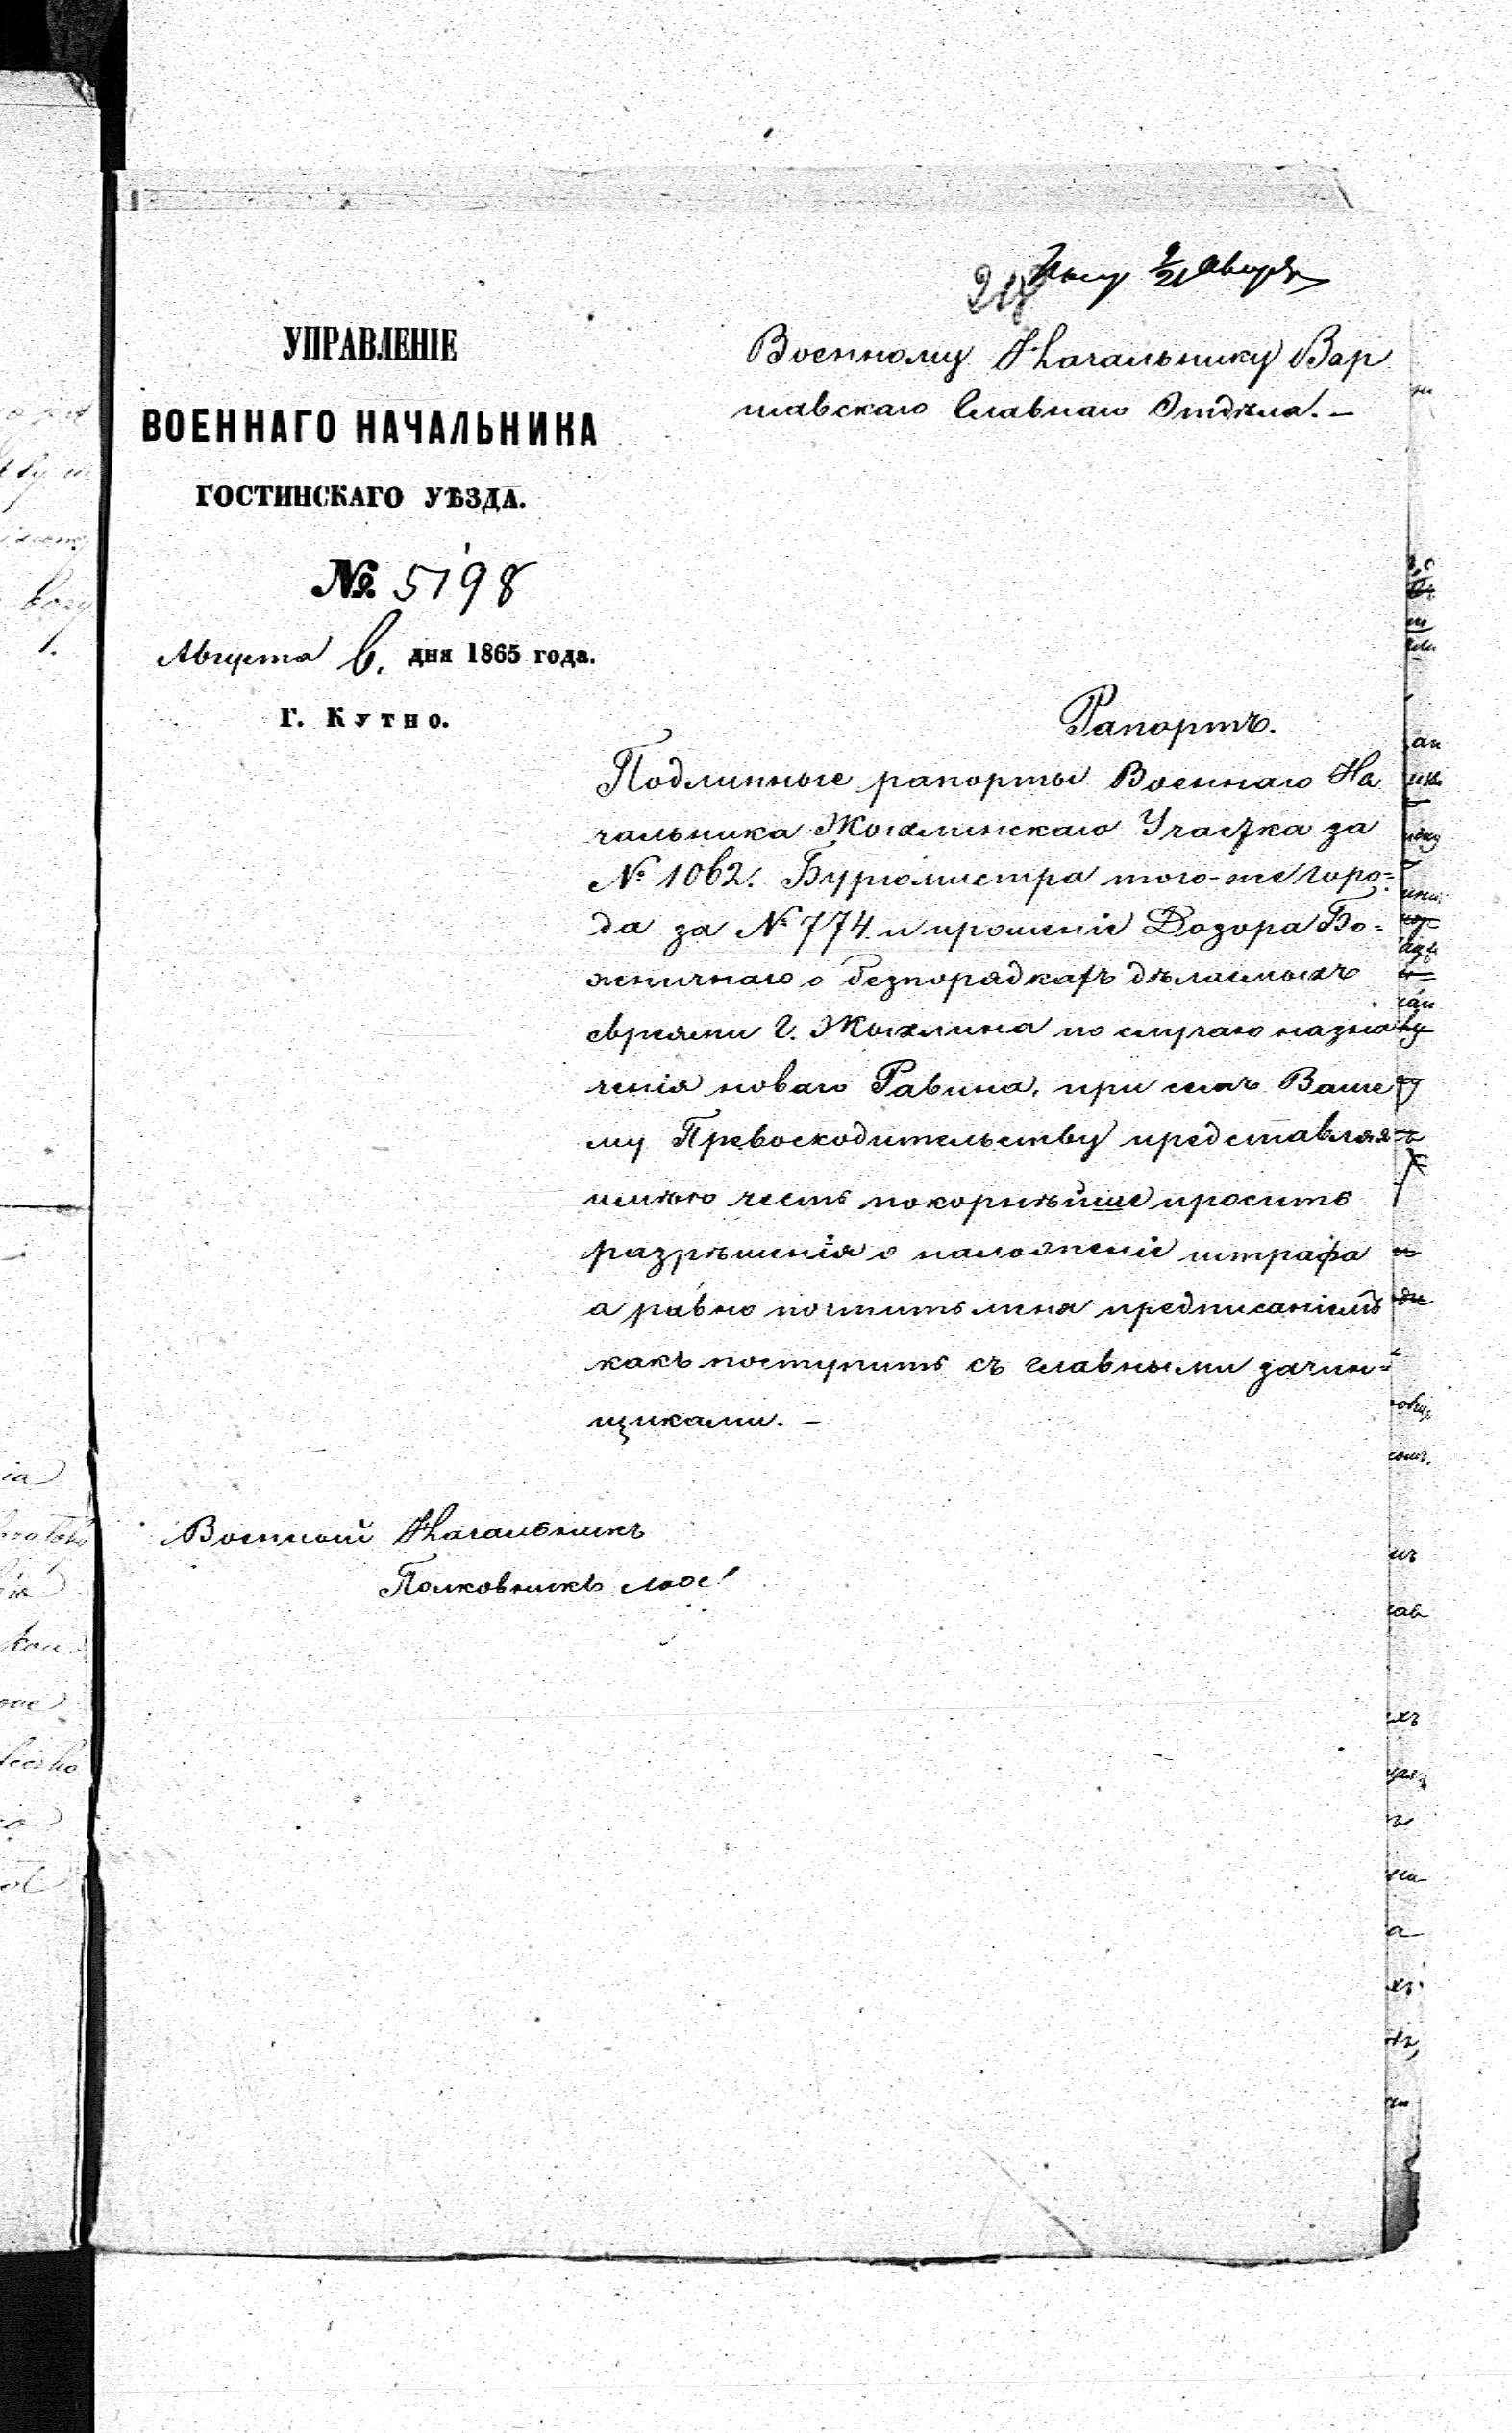 9/21 Августа
УПРАВЛЕНІЕ
ВОЕННАГО НАЧАЛЬНИКА
ГОСТИНСКАГО УѢЗДА.
№ 5198
Августа 6. дня 1865 года.
Г. Кутно.
Военному Начальнику Вар
шавскаго Главнаго Отдѣла. —
Рапортъ.
Подлинные рапорты Военнаго На
чальника Жыхлинскаго Участка за
№ 1062. Бургомистра того-же горо=
да за № 774 и прошеніе Дозора Бо=
жничнаго о безпорядкахъ дѣлаемыхъ
евреями г. Жыхлина по случаю назна
ченія новаго Равина, при семъ Ваше
му Превосходительству представляя
имѣю честь покорнѣйше просить
разрѣшенія о наложеніе штрафа
а равно почтить меня предписаніемъ
какъ поступить съ главными зачин=
щиками. —
Военный Начальникъ
Полковникъ